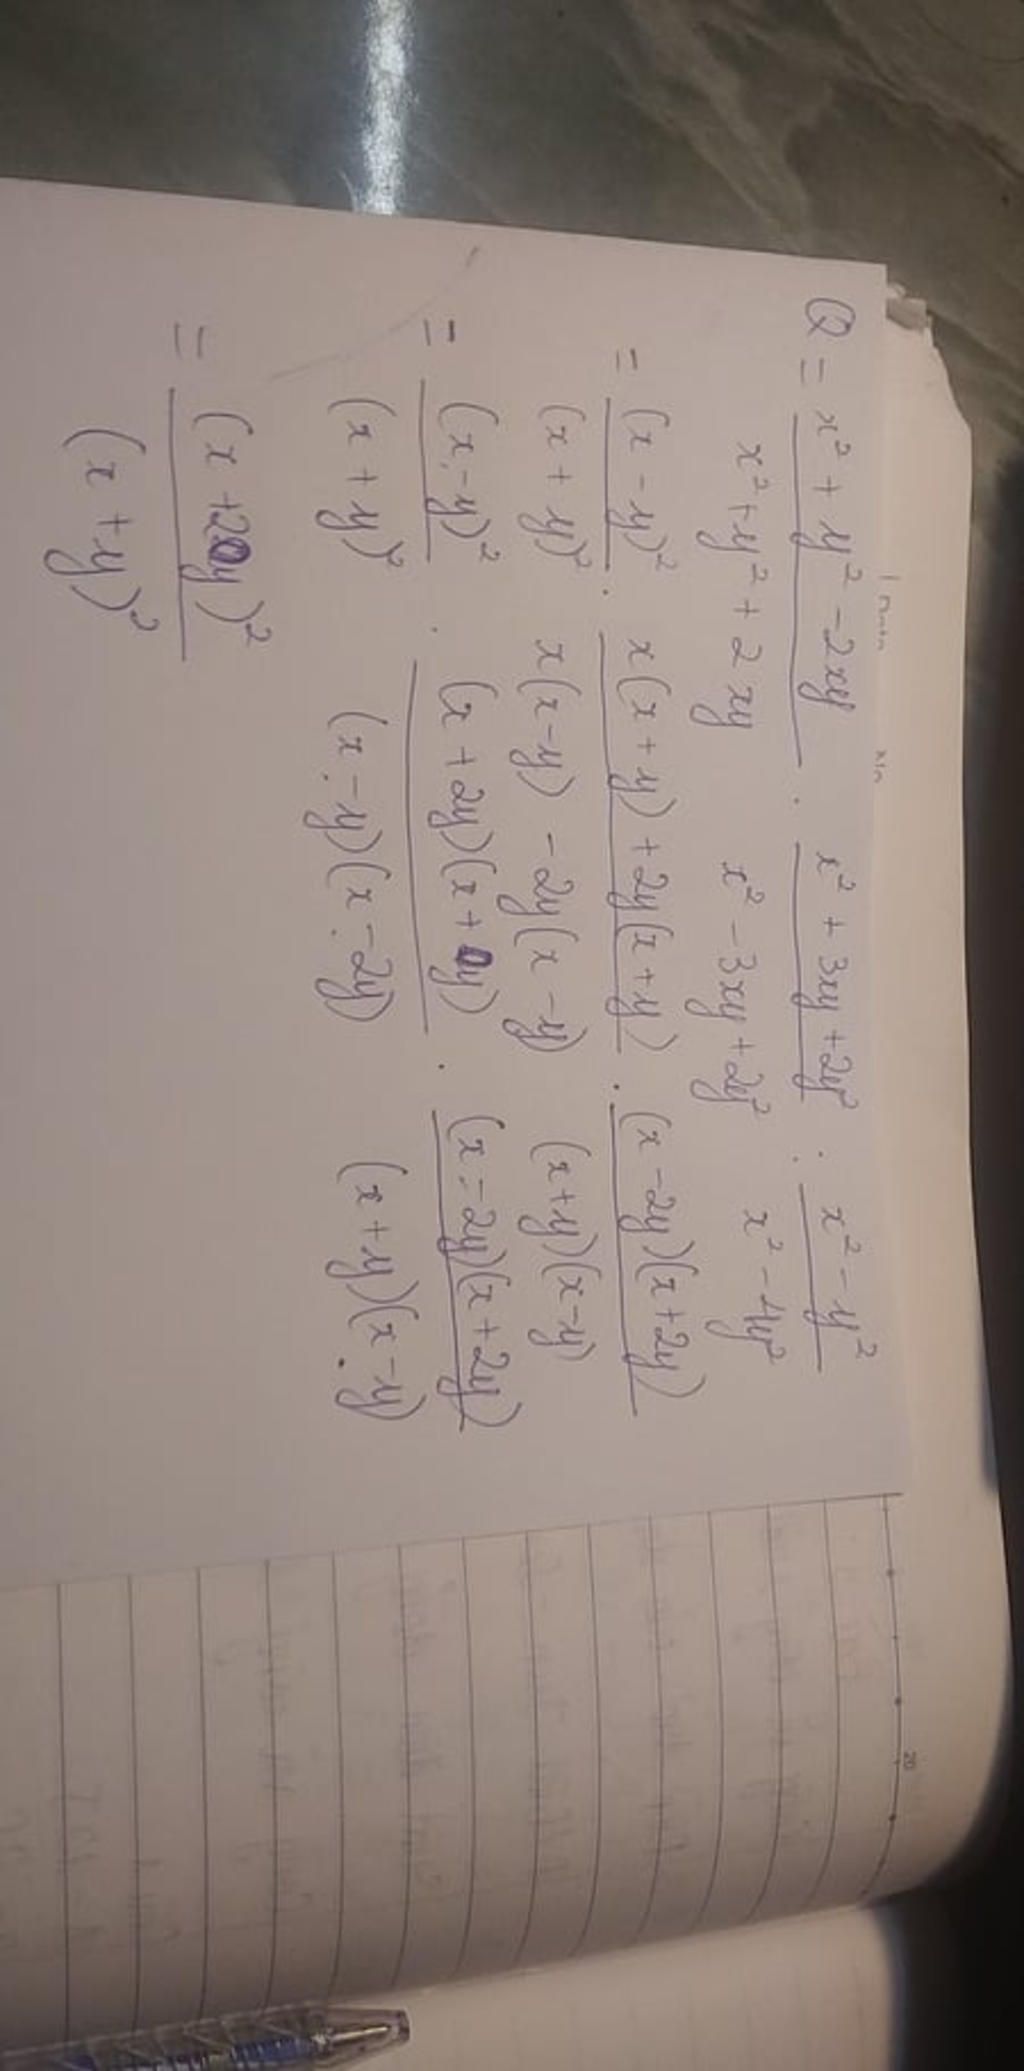 Q = x² + y² - 2xy / x² + y² + 2xy . x² + 3xy + 2y² / x² - 3xy + 2y² : x² - y² / x² - 4y²
= (x - y)² / (x + y)² . x(x + y) + 2y(x + y) / x(x - y) - 2y(x - y) . (x - 2y)(x + 2y) / (x + y)(x - y)
= (x - y)² / (x + y)² . (x + 2y)(x + y) / (x - y)(x - 2y) . (x - 2y)(x + 2y) / (x + y)(x - y)
= (x + 2y)² / (x + y)²
20